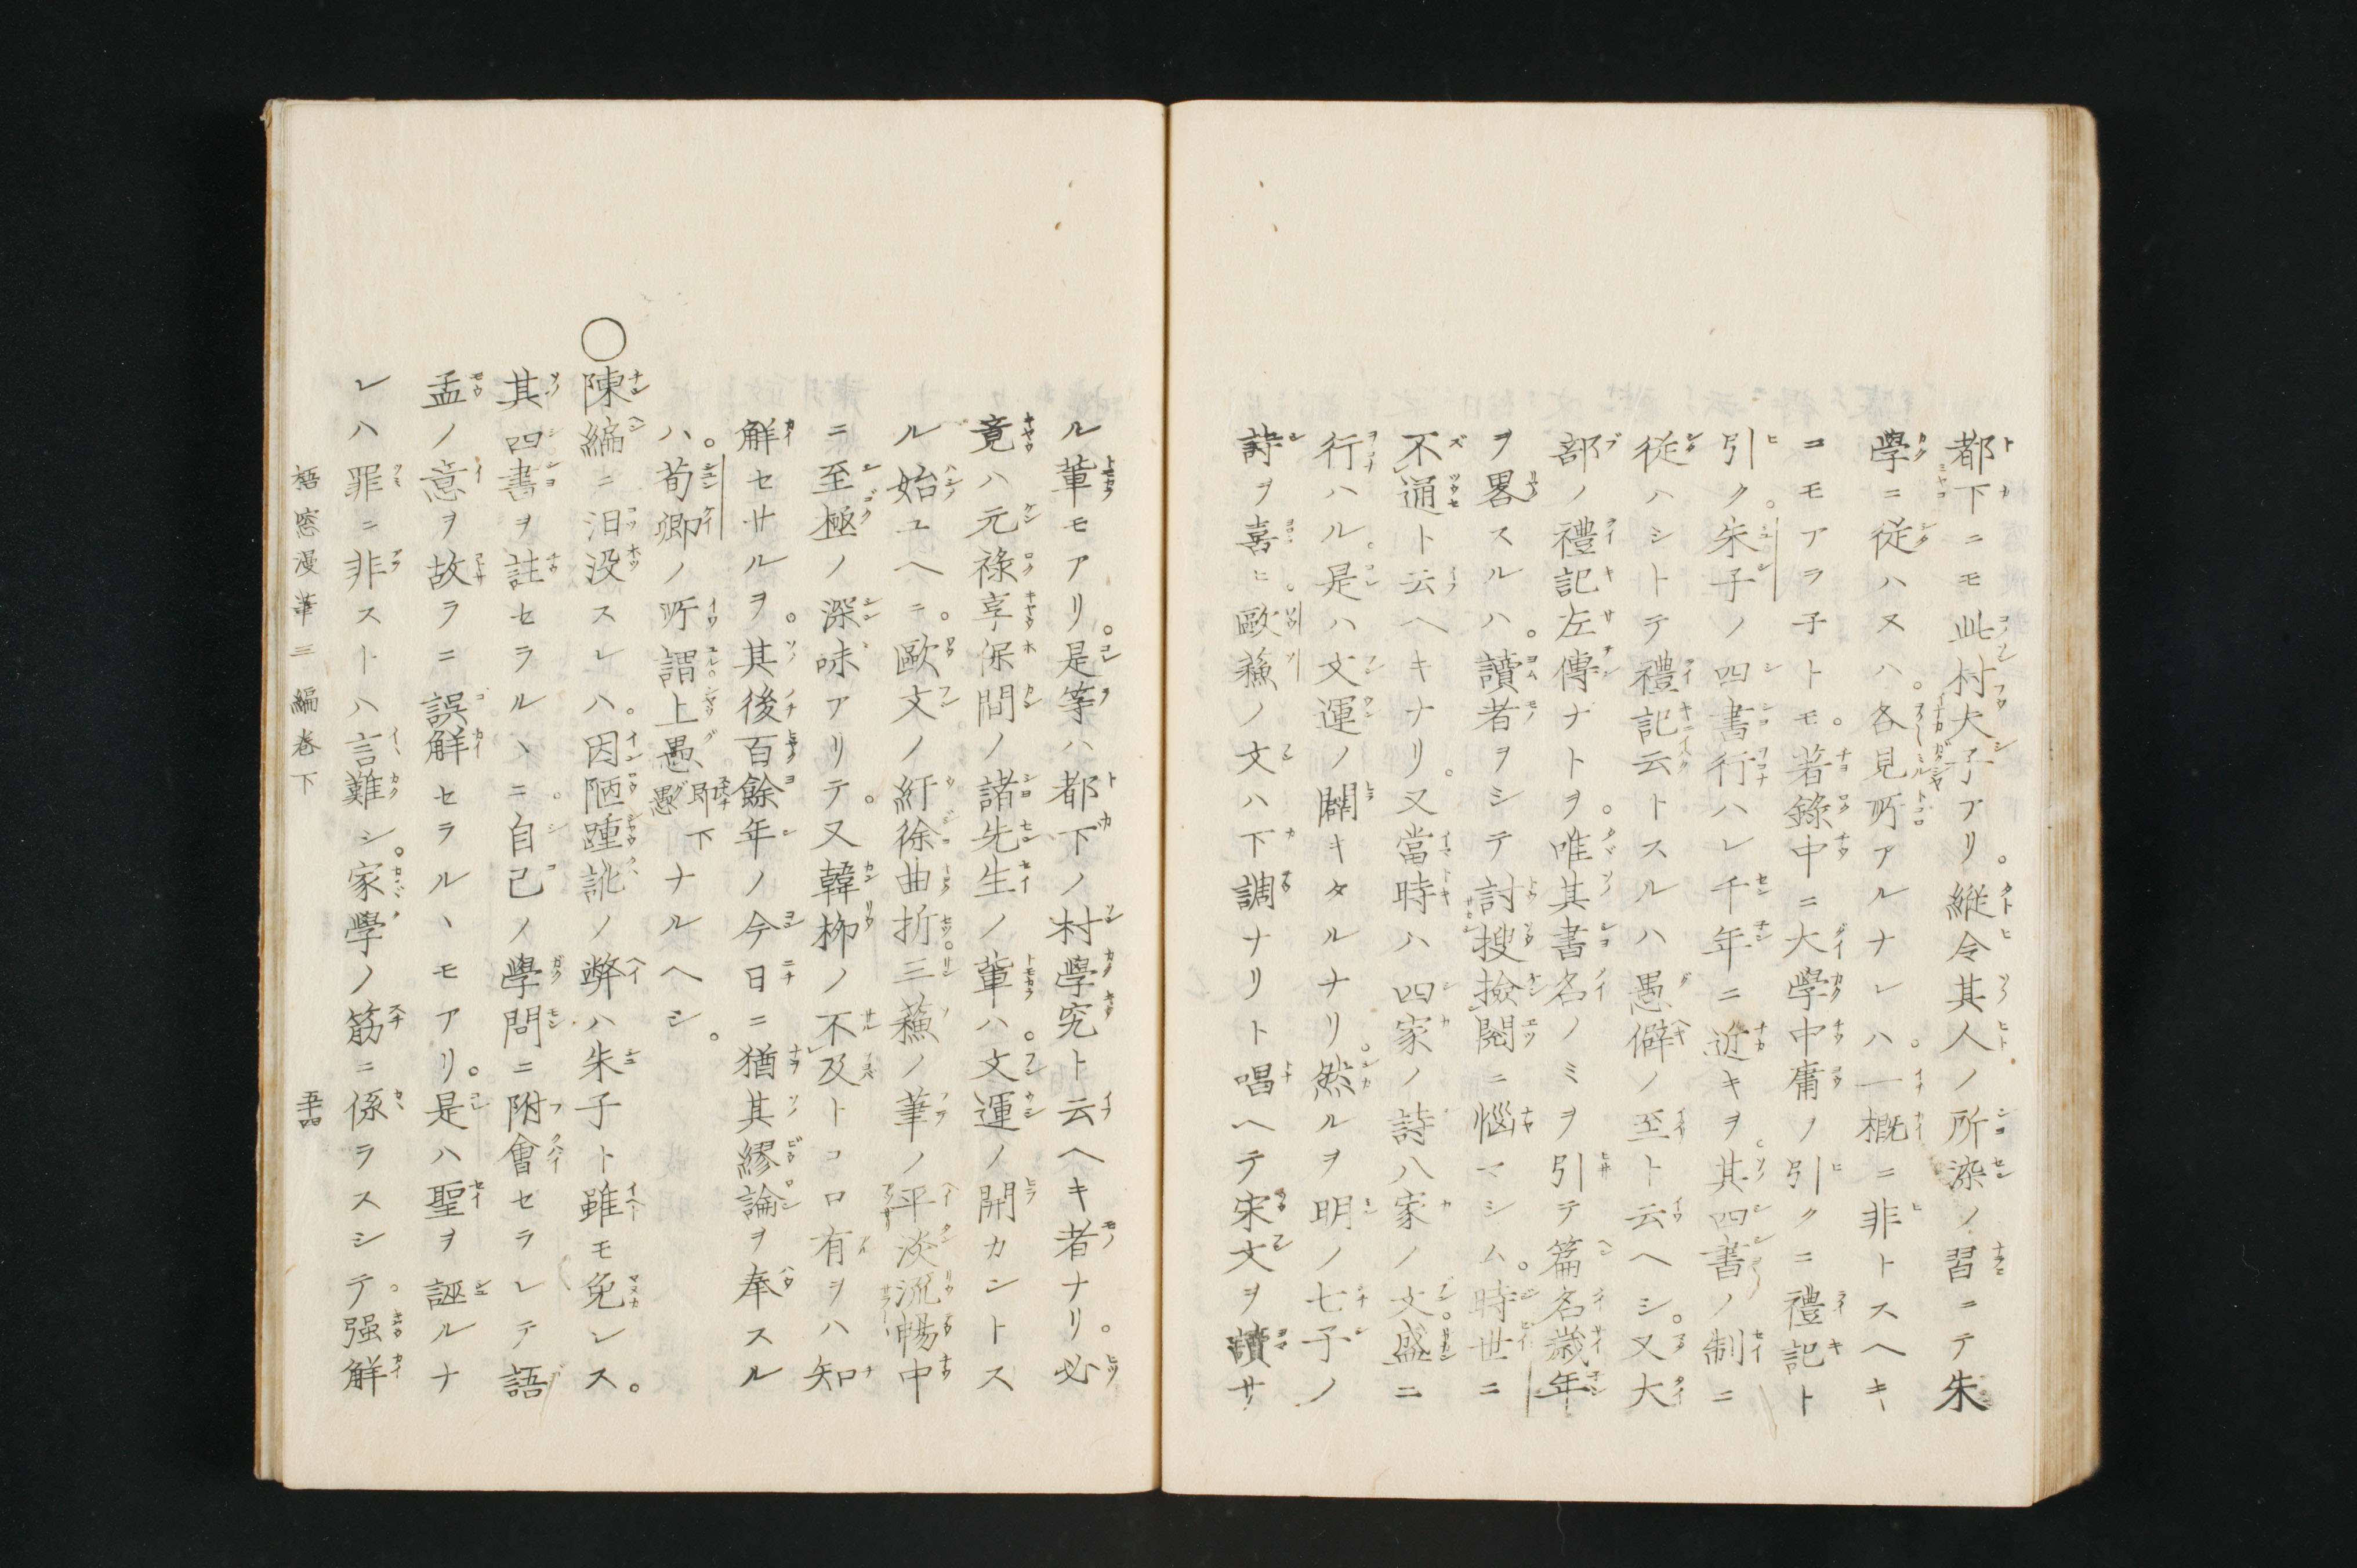 都下ニモ此村夫子アリ。縦令其人ノ所染ノ習ニテ朱
學ニ從ハスハ。各見所アルナレハ。一概ニ非トスヘキ
コモアラ子トモ。著錄中ニ大學中庸ノ引クニ禮記ト
引ク。朱子ノ四書行ハレ千年ニ近キヲ。其四書ノ制ニ
從ハシトテ禮記云トスルハ愚僻ノ至ト云ヘシ。又大
部ノ禮記左傳ナトヲ。唯其書名ノミヲ引テ篇名歲年
ヲ畧スルハ。讀者ヲシテ討搜撿閱ニ惱マシム。時世ニ
不通ト云ヘキナリ。又當時ハ四家ノ詩八家ノ文。盛ニ
行ハル。是ハ文運ノ闢キタルナリ。然ルヲ明ノ七子ノ
詩ヲ喜ヒ。歐蘓ノ文ハ下調ナリト唱ヘテ宋文ヲ讀サ
ル軰モアリ。是等ハ都下ノ村學究ト云ヘキ者ナリ。必
竟ハ元祿享保間ノ諸先生ノ軰ハ。文運ノ開カントス
ル始ユヘニ。歐文ノ紆徐曲折。三蘓ノ筆ノ平淡流暢中
ニ至極ノ深味アリテ。又韓柳ノ不及トコロ有ヲハ知
解セサルヲ。其後百餘年ノ今日ニ猶其繆論ヲ奉スル
ハ。荀卿ノ所謂上愚即下愚ナルヘシ。
○陳編ニ汨没スレハ。因陋踵訛ノ弊ハ朱子ト雖モ免レス。
其四書ヲ註セラルヽニ。自己ノ學問ニ附會セラレテ語
孟ノ意ヲ故ラニ誤解セラルヽモアリ。是ハ聖ヲ誣ルナ
レハ罪ニ非ストハ言難シ。家學ノ筋ニ係ラスシテ。强解
梧窓漫筆三編卷下 五十四